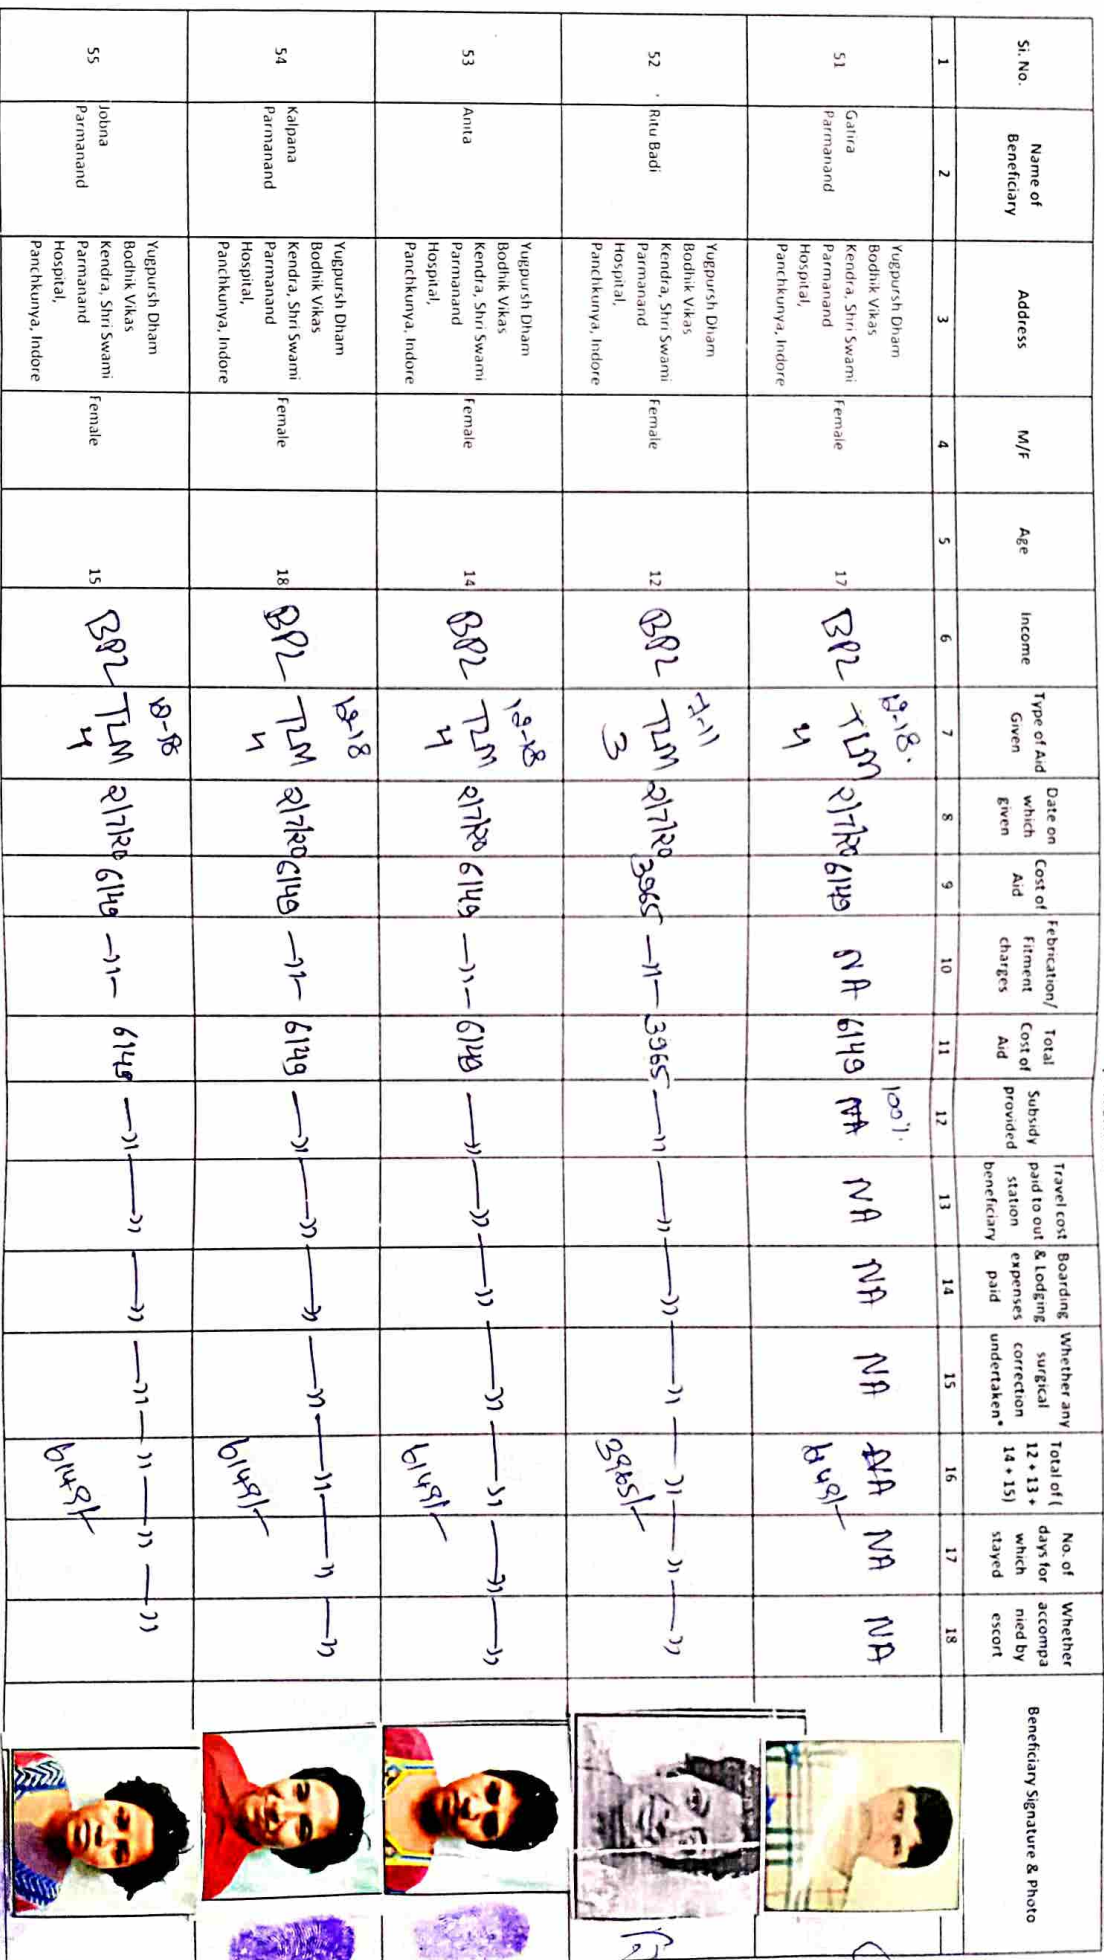 Si. No.
Name of
Beneficiary
Address
M/F
Age
Income
Type of Aid
Given
Date on
which
given
Cost of
Aid
Febrication/
Fitment
charges
Total
Cost of
Aid
Subsidy
provided
Travel cost
paid to out
station
beneficiary
Boarding
& Lodging
expenses
paid
Whether any
surgical
correction
undertaken*
Total of (
12 + 13 +
14 + 15)
No. of
days for
which
stayed
Whether
accompa
nied by
escort
Beneficiary Signature & Photo
1 2 3 4 5 6 7 8 9 10 11 12 13 14 15 16 17 18
51
Gatira
Parmanand
Yugpursh Dham
Bodhik Vikas
Kendra, Shri Swami
Parmanand
Hospital,
Panchkunya, Indore
Female
17
BPL
12-18.
TLM
4
2/7/20
6149
NA
6149
100%.
NA
NA
NA
NA
NA
6149/-
NA
NA
52
Ritu Badi
Yugpursh Dham
Bodhik Vikas
Kendra, Shri Swami
Parmanand
Hospital,
Panchkunya, Indore
Female
12
BPL
7-11
TLM
3
2/7/20
3965
—"—
3965
—"— —"— —"— —"— —"— —"— —"—
3965/-
53
Anita
Yugpursh Dham
Bodhik Vikas
Kendra, Shri Swami
Parmanand
Hospital,
Panchkunya, Indore
Female
14
BPL
12-18
TLM
4
2/7/20
6149
—"—
6149
—"— —"— —"— —"— —"— —"— —"—
6149/-
54
Kalpana
Parmanand
Yugpursh Dham
Bodhik Vikas
Kendra, Shri Swami
Parmanand
Hospital,
Panchkunya, Indore
Female
18
BPL
12-18
TLM
4
2/7/20
6149
—"—
6149
—"— —"— —"— —"— —"— —"— —"—
6149/-
55
Jobna
Parmanand
Yugpursh Dham
Bodhik Vikas
Kendra, Shri Swami
Parmanand
Hospital,
Panchkunya, Indore
Female
15
BPL
12-18
TLM
4
2/7/20
6149
—"—
6149
—"— —"— —"— —"— —"— —"— —"—
6149/-